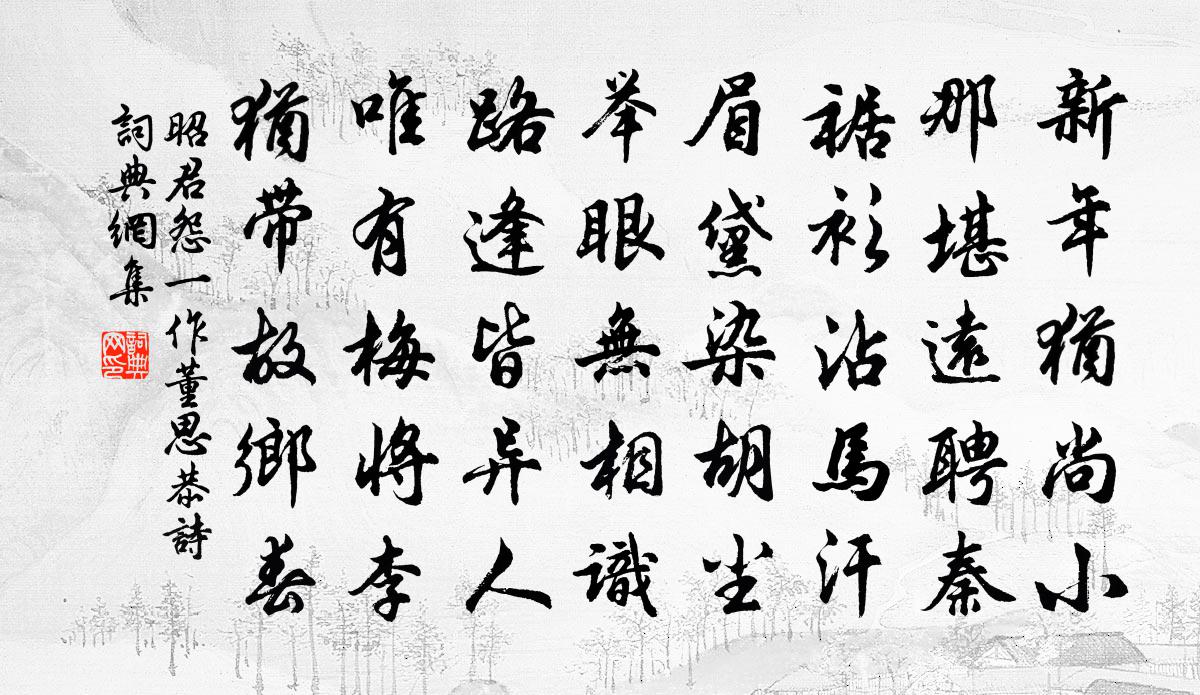 新年猶尚小
那堪遠聘秦
裾衫沾馬汗
眉黛染胡尘
举眼無相識
路逢皆异人
唯有梅將李
猶带故鄉春
昭君怨一作董思恭詩
詞典網集
詞典网印